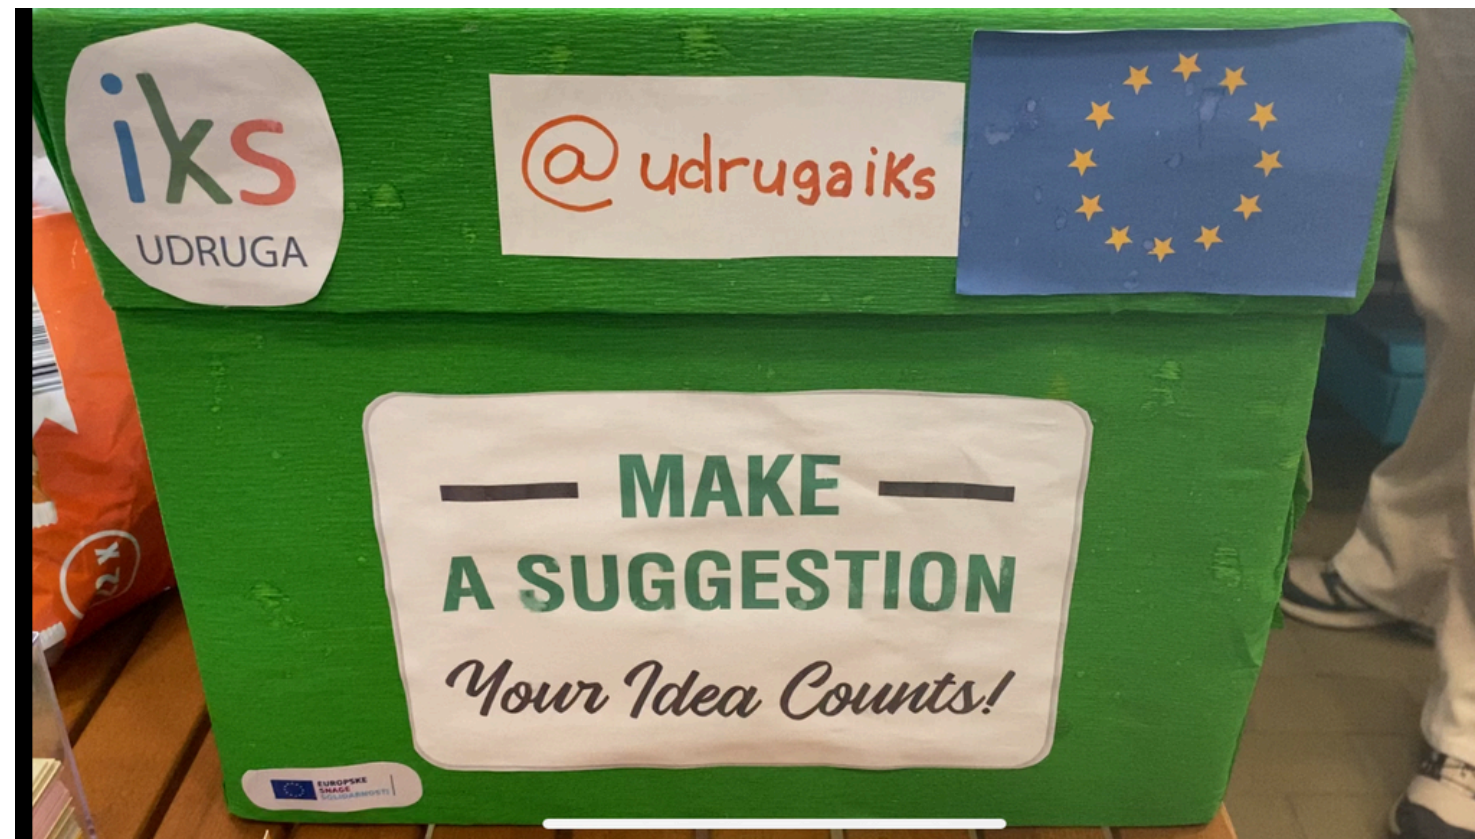 iks
UDRUGA
@udrugaiks
MAKE
A SUGGESTION
Your Idea Counts!
EUROPSKE
SNAGE
SOLIDARNOSTI
2X